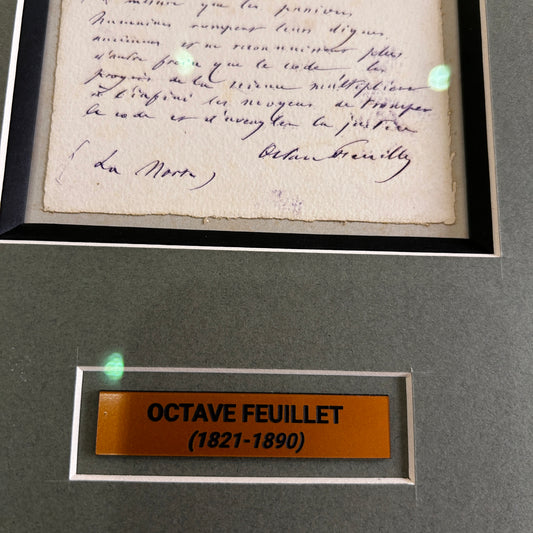 à mesure que les passions
humaines rompent leurs digues
anciennes et ne reconnaissent plus
d'autre frein que le code les
progrès de la science multiplient
à l'infini les moyens de tromper
le code et d'aveugler la justice
(La Morte)
Octave Feuillet
OCTAVE FEUILLET
(1821-1890)